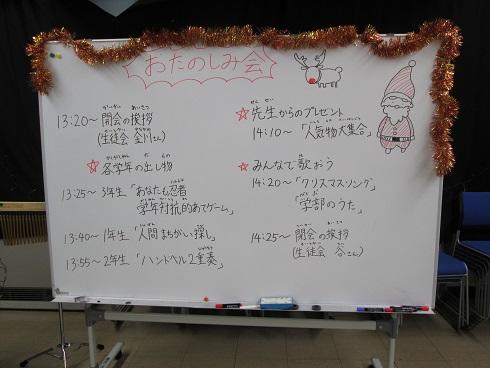 おたのしみ会
13:20～ 開会の挨拶
(生徒会 金川さん)
☆ 各学年の出し物
13:25～ 3年生「あなたも忍者
学年対抗的あてゲーム」
13:40～ 1年生「人間まちがい探し」
13:55～ 2年生「ハンドベル2重奏」
☆ 先生からのプレゼント
14:10～「人気物大集合」
☆ みんなで歌おう
14:20～「クリスマスソング」
「学部のうた」
14:25～ 閉会の挨拶
(生徒会 谷さん)